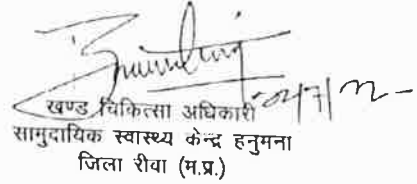 खण्ड चिकित्सा अधिकारी
सामुदायिक स्वास्थ्य केन्द्र हनुमना
जिला रीवा (म.प्र.)